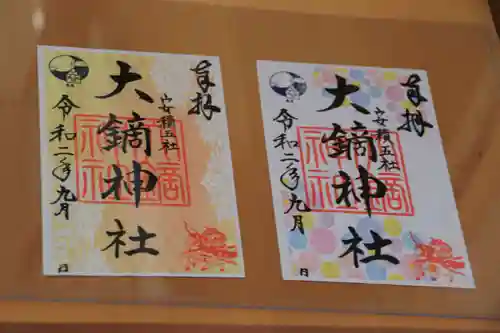 奉拝
安積五社
大鏑神社
令和二年九月
日
奉拝
安積五社
大鏑神社
令和二年九月
日